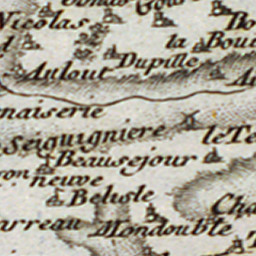 Nicolas
la Bour
Dupille
Aulout
naiserie
Seiguigniere
le Te
Beausejour
neuve
Belisle
Cha
arreau
Mondouble